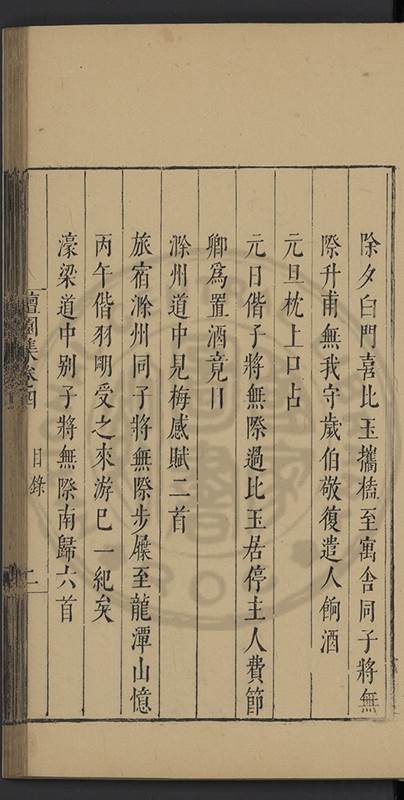 除夕白門喜比玉攜榼至寓舍同子將無
際升甫無我守歲伯敬復遣人餉酒
元旦枕上口占
元日偕子將無際過比玉居停主人費節
卿為置酒竟日
滁州道中見梅感賦二首
旅宿滁州同子將無際步屧至龍潭山憶
丙午偕羽明受之來游已一紀矣
濠梁道中别子將無際南歸六首
檀園集卷四
目錄
二